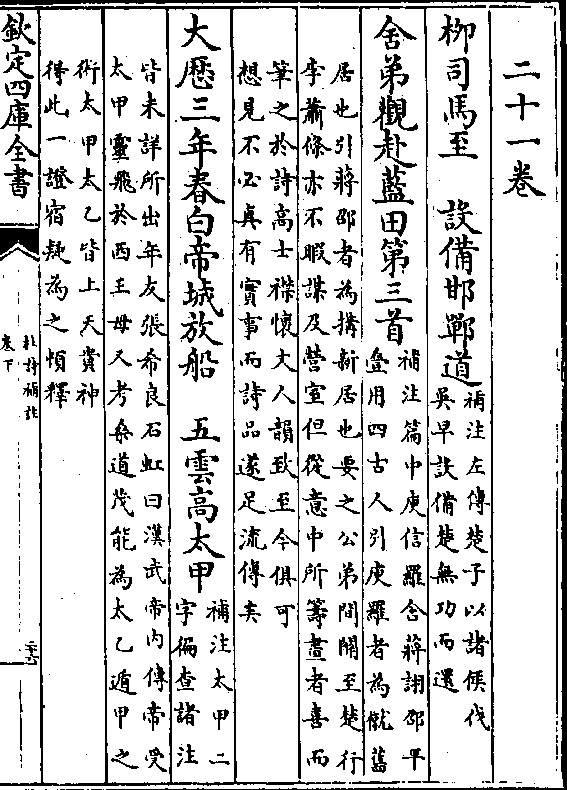 二十一卷
柳司馬至　設備邯鄲道
補注左傳楚子以諸侯伐
吳早設備楚無功而還
舍弟觀赴藍田第三首
補注篇中庾信羅含蔣詡邵平
疊用四古人引庾羅者為僦舊
居也引蔣邵者為搆新居也要之公弟間關至楚行
李蕭條亦不暇謀及營室但從意中所籌畫者喜而
筆之於詩高士襟懷文人韻致至今俱可
想見不必真有實事而詩品遂足流傳矣
大歴三年春白帝城放船　五雲高太甲
補注太甲二
字徧查諸注
皆未詳所出年友張希良石虹曰漢武帝内傳帝受
太甲靈飛於西王母又考桑道茂能為太乙遁甲之
術太甲太乙皆上天貴神
得此一證宿疑為之頓釋
欽定四庫全書
杜詩補註
卷下